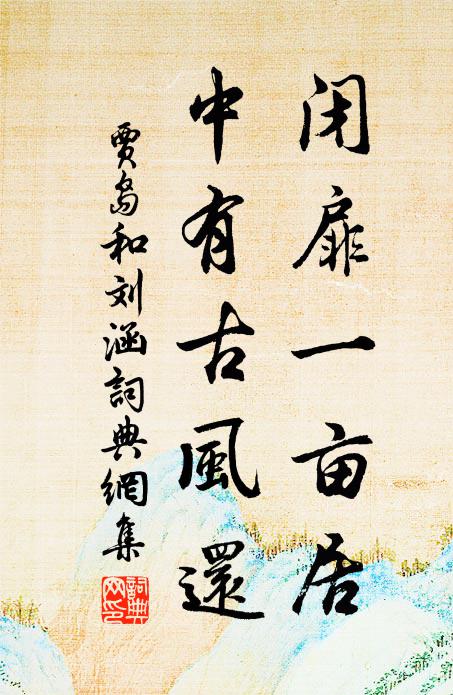 闭扉一亩居
中有古風還
賈島和刘涵詞典網集
詞典网印